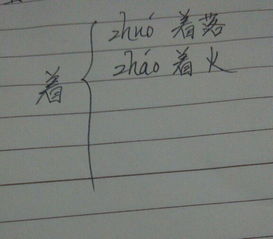 zhuó 着落
着
zháo 着火